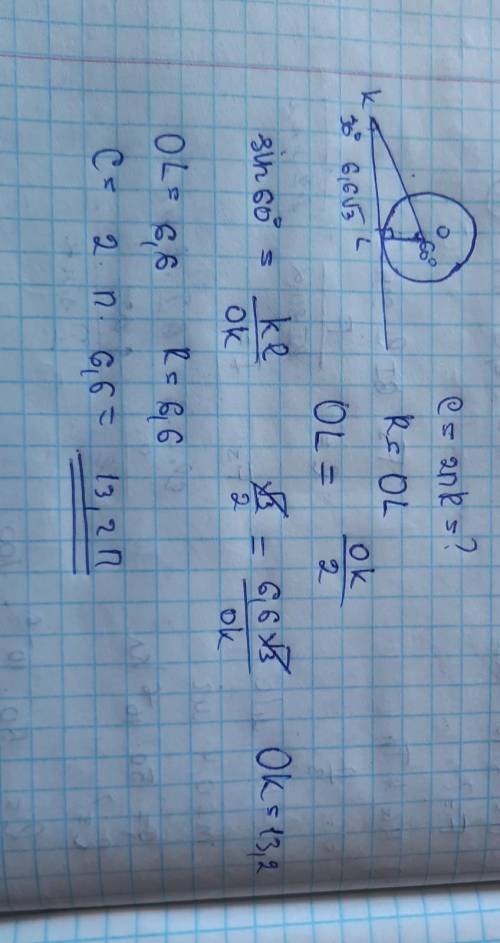 C = 2πR = ?
R = OL
K 30° 6,6√3 L O 60°
OL = OK/2
sin 60° = KL/OK √3/2 = 6,6√3/OK OK = 13,2
OL = 6,6 R = 6,6
C = 2 · π · 6,6 = 13,2π